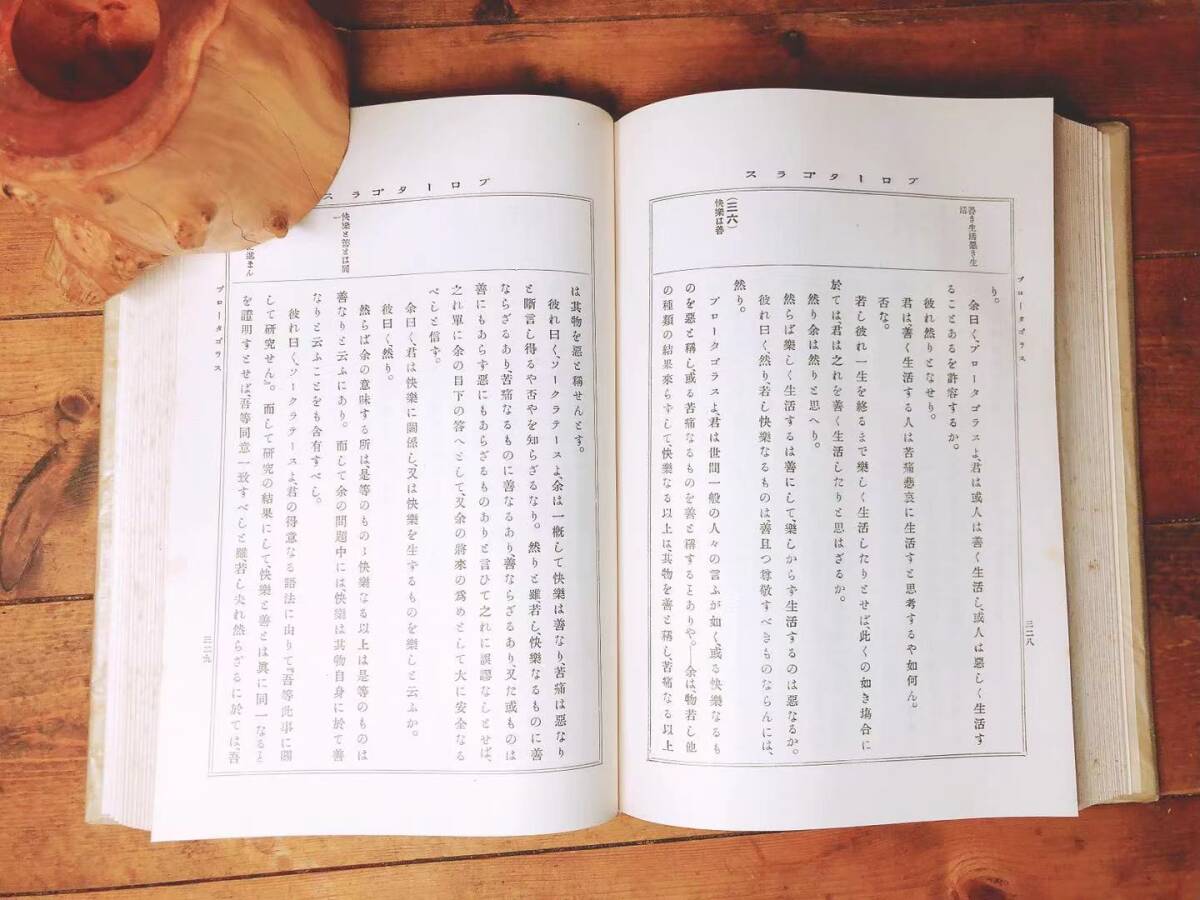 プロータゴラス
善き生活惡き生
活
(三六)
快樂は善
プロータゴラス
三二八
り。
余曰く、プロータゴラスよ、君は或人は善く生活し、或人は惡しく生活す
ることあるを許容するか。
彼れ然りとなせり。
君は善く生活する人は苦痛悲哀に生活すと思考するや如何ん。
否な。
若し彼れ一生を終るまで樂しく生活したりとせば、此くの如き塲合に
於ては君は之れを善く生活したりと思はざるか。
然り余は然りと思へり。
然らば樂しく生活するは善にして、樂しからず生活するのは惡なるか。
彼れ曰く、然り、若し快樂なるものは善且つ尊敬すべきものならんには、
然り。
プロータゴラスよ、君は世間一般の人々の言ふが如く、或る快樂なるも
のを惡と稱し、或る苦痛なるものを善と稱することありや。—余は、物若し他
の種類の結果來らずして、快樂なる以上は、其物を善と稱し、苦痛なる以上
プロータゴラス
快樂と善とは同
一
は其物を惡と稱せんとす。
彼れ曰く、ソークラテースよ、余は一概して快樂は善なり、苦痛は惡なり
と斷言し得るや否やを知らざるなり。然りと雖、若し、快樂なるものに善
ならざるあり、苦痛なるものに善なるあり、善ならざるあり、又た或ものは
善にもあらず惡にもあらざるものありと言ひて之れに誤謬なしとせば、
之れ單に余の目下の答へとして、又余の將來の爲めとして大に安全なる
べしと信ず。
余曰く、君は快樂に關係し、又は快樂を生ずるものを樂しと云ふか。
彼れ曰く、然り。
然らば余の意味する所は、是等のものゝ快樂なる以上は是等のものは
善なりと云ふにあり。而して余の問題中には、快樂は其物自身に於て善
なりと云ふことをも含有すべし。
彼れ曰く、ソークラテースよ、君の得意なる語法に由りて『吾等此事に關
して研究せん』。而して研究の結果にして、快樂と善とは眞に同一なると
を證明すとせば、吾等同意一致すべしと雖若し夫れ然らざるに於ては、吾
プロータゴラス
三二九